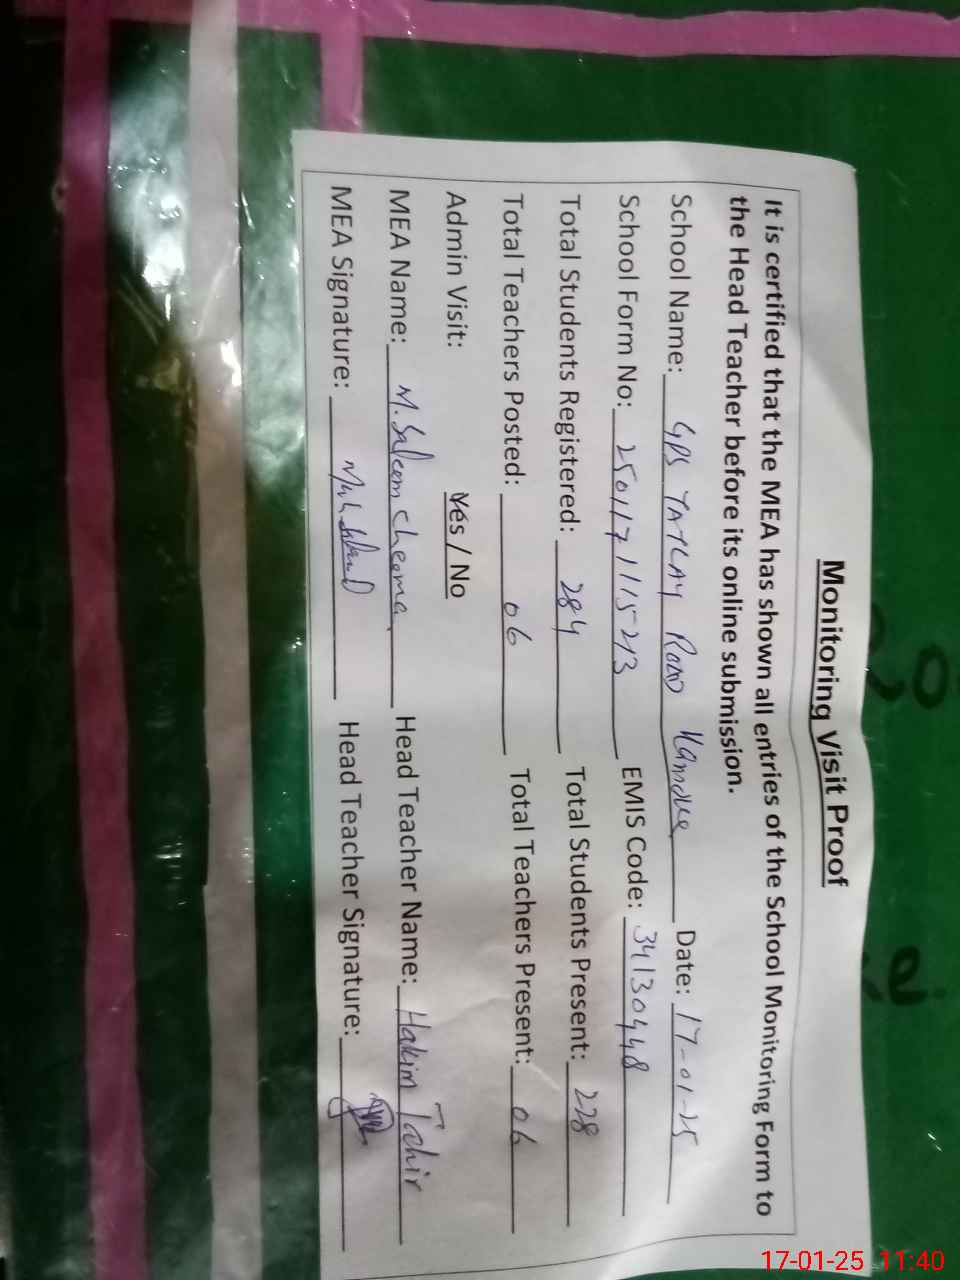 Monitoring Visit Proof
It is certified that the MEA has shown all entries of the School Monitoring Form to
the Head Teacher before its online submission.
School Name: GPS TATLAY ROAD Kamoke Date: 17-01-25
School Form No: 2501171115213 EMIS Code: 34130448
Total Students Registered: 284 Total Students Present: 228
Total Teachers Posted: 06 Total Teachers Present: 06
Admin Visit: Yes / No
MEA Name: M. Saleem Cheema Head Teacher Name: Hakim Tahir
MEA Signature: Head Teacher Signature:
17-01-25 11:40